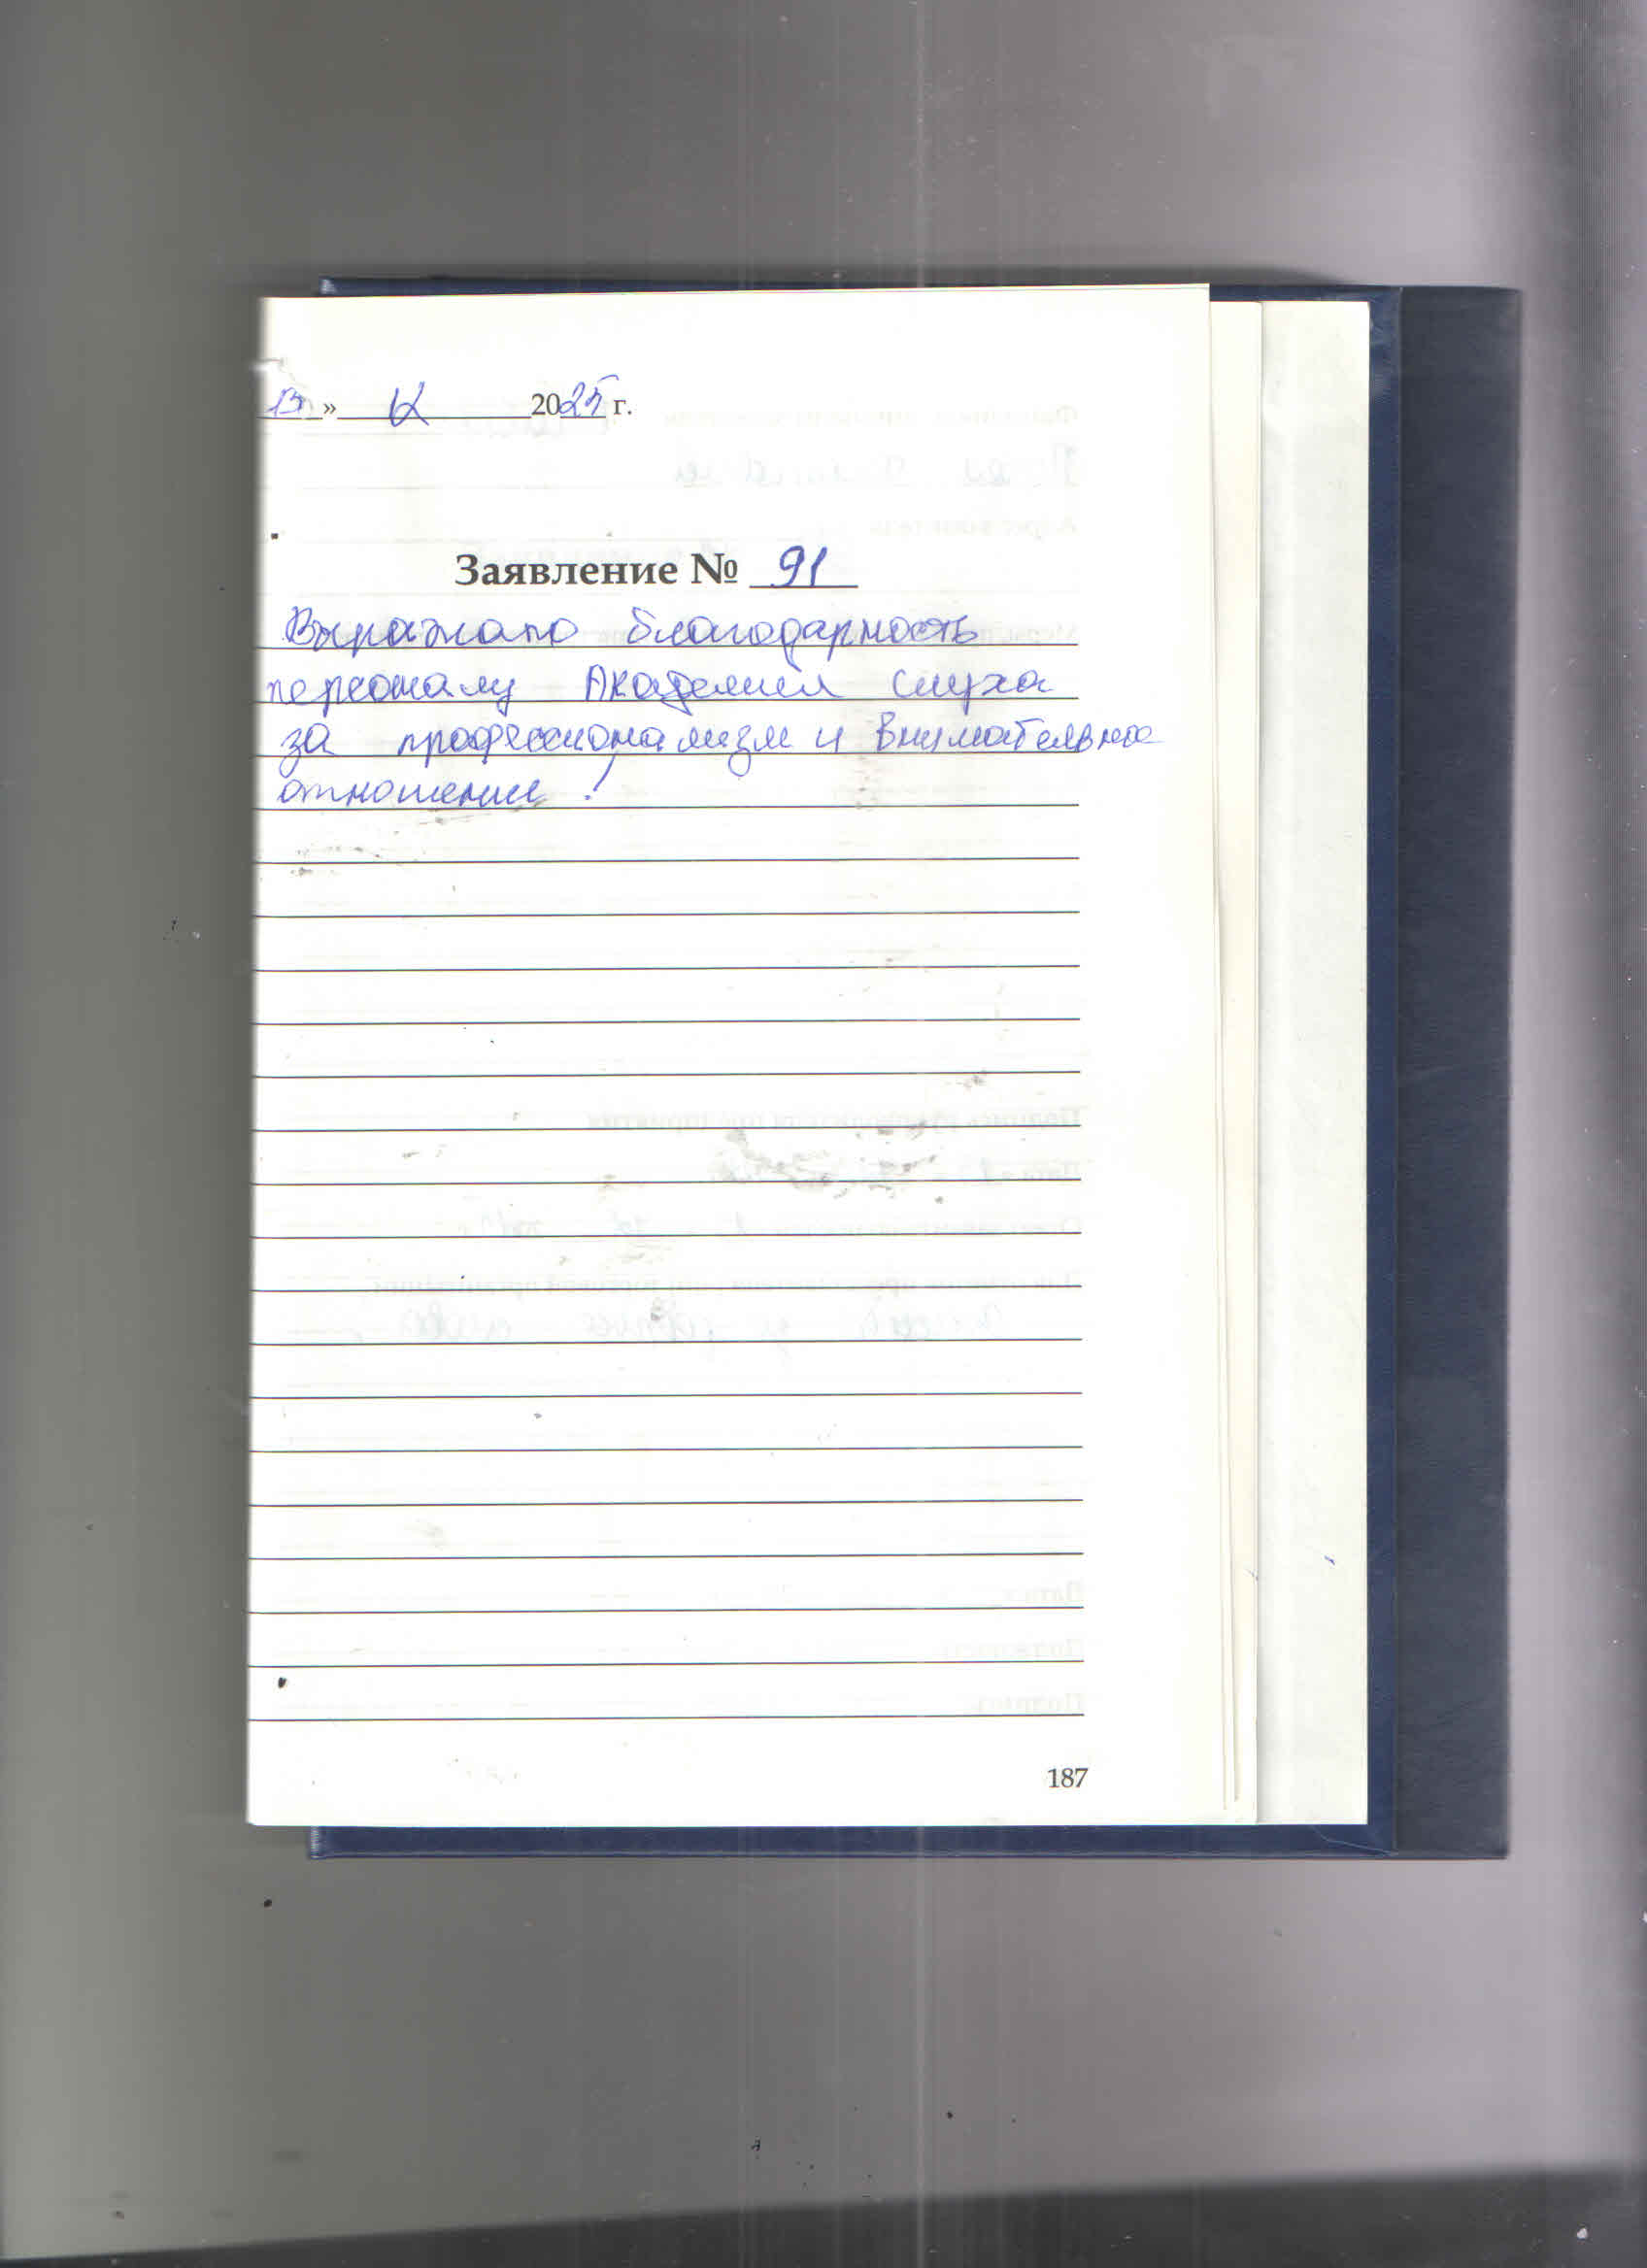 13 » 12 2025 г.
Заявление № 91
Выражаю благодарность
персоналу Академии слуха
за профессионализм и внимательное
отношение !
187